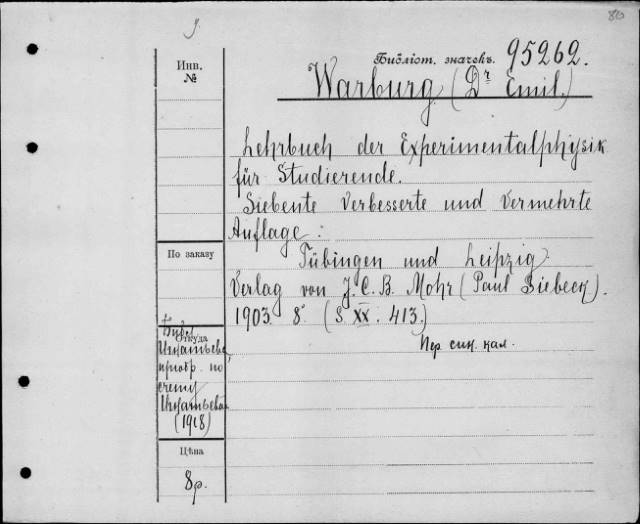 80
Инв.
№
Библіот. значекъ 95262.
Warburg (Dr Emil.)
Lehrbuch der Experimentalphysik
für Studierende.
Siebente verbesserte und vermehrte
Auflage:
По заказу
Tübingen und Leipzig.
Verlag von J. C. B. Mohr (Paul Siebeck).
1903. 8°. (S. XX. 413.)
Откуда
Пер. син. кал.
Игнатьева,
приобр. по
счету
Игнатьева
(1918)
Цѣна
8р.